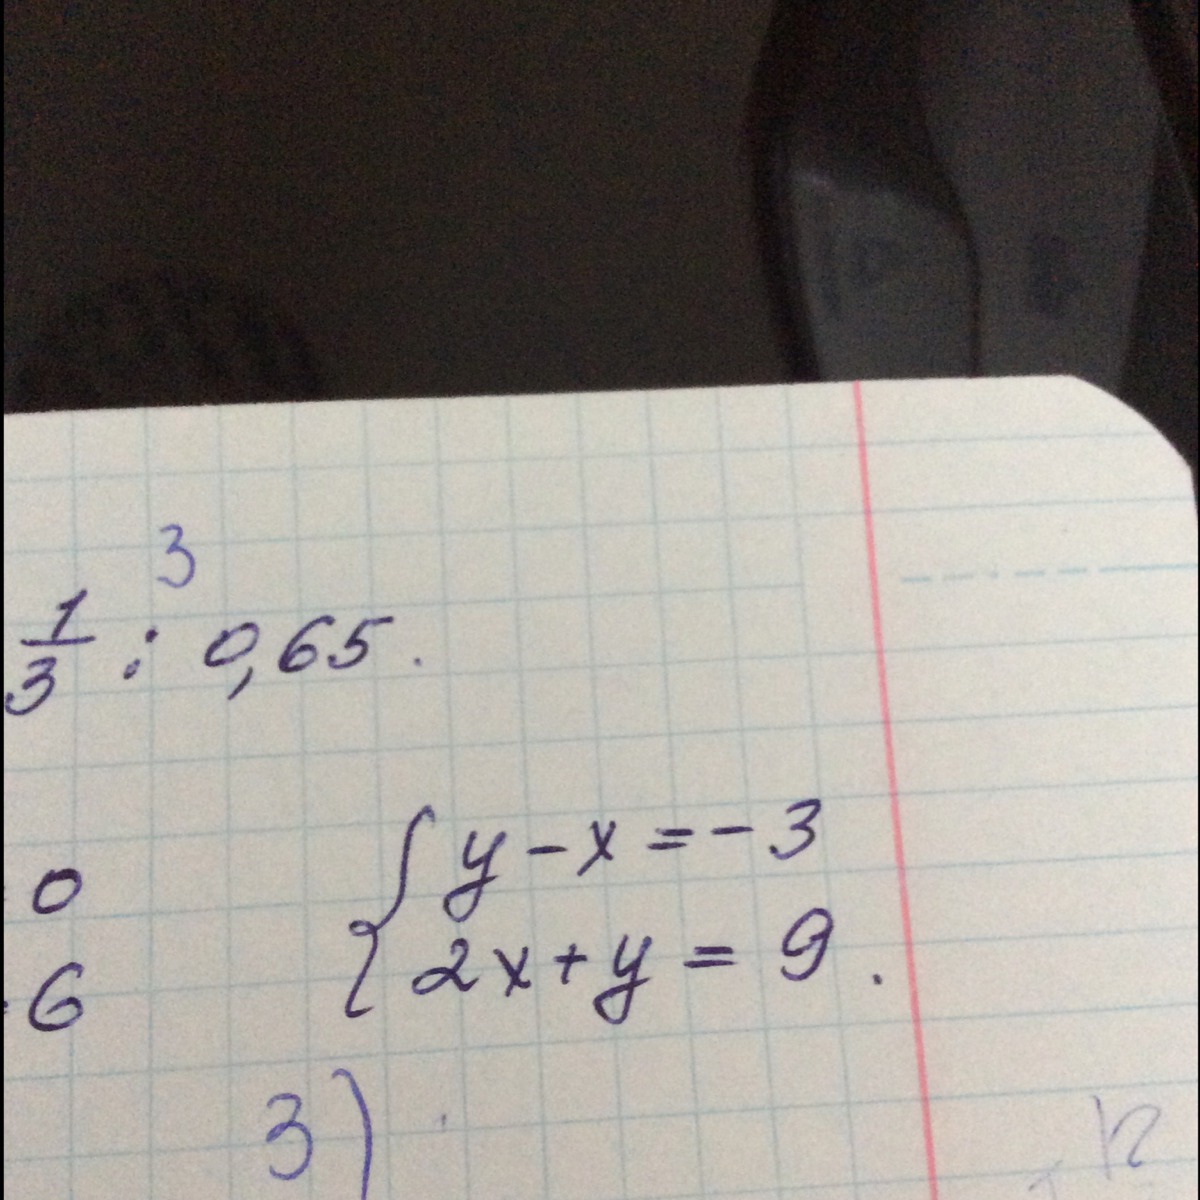 3
1/3 : 0,65.
0
{ y - x = -3
6
2x + y = 9.
3)